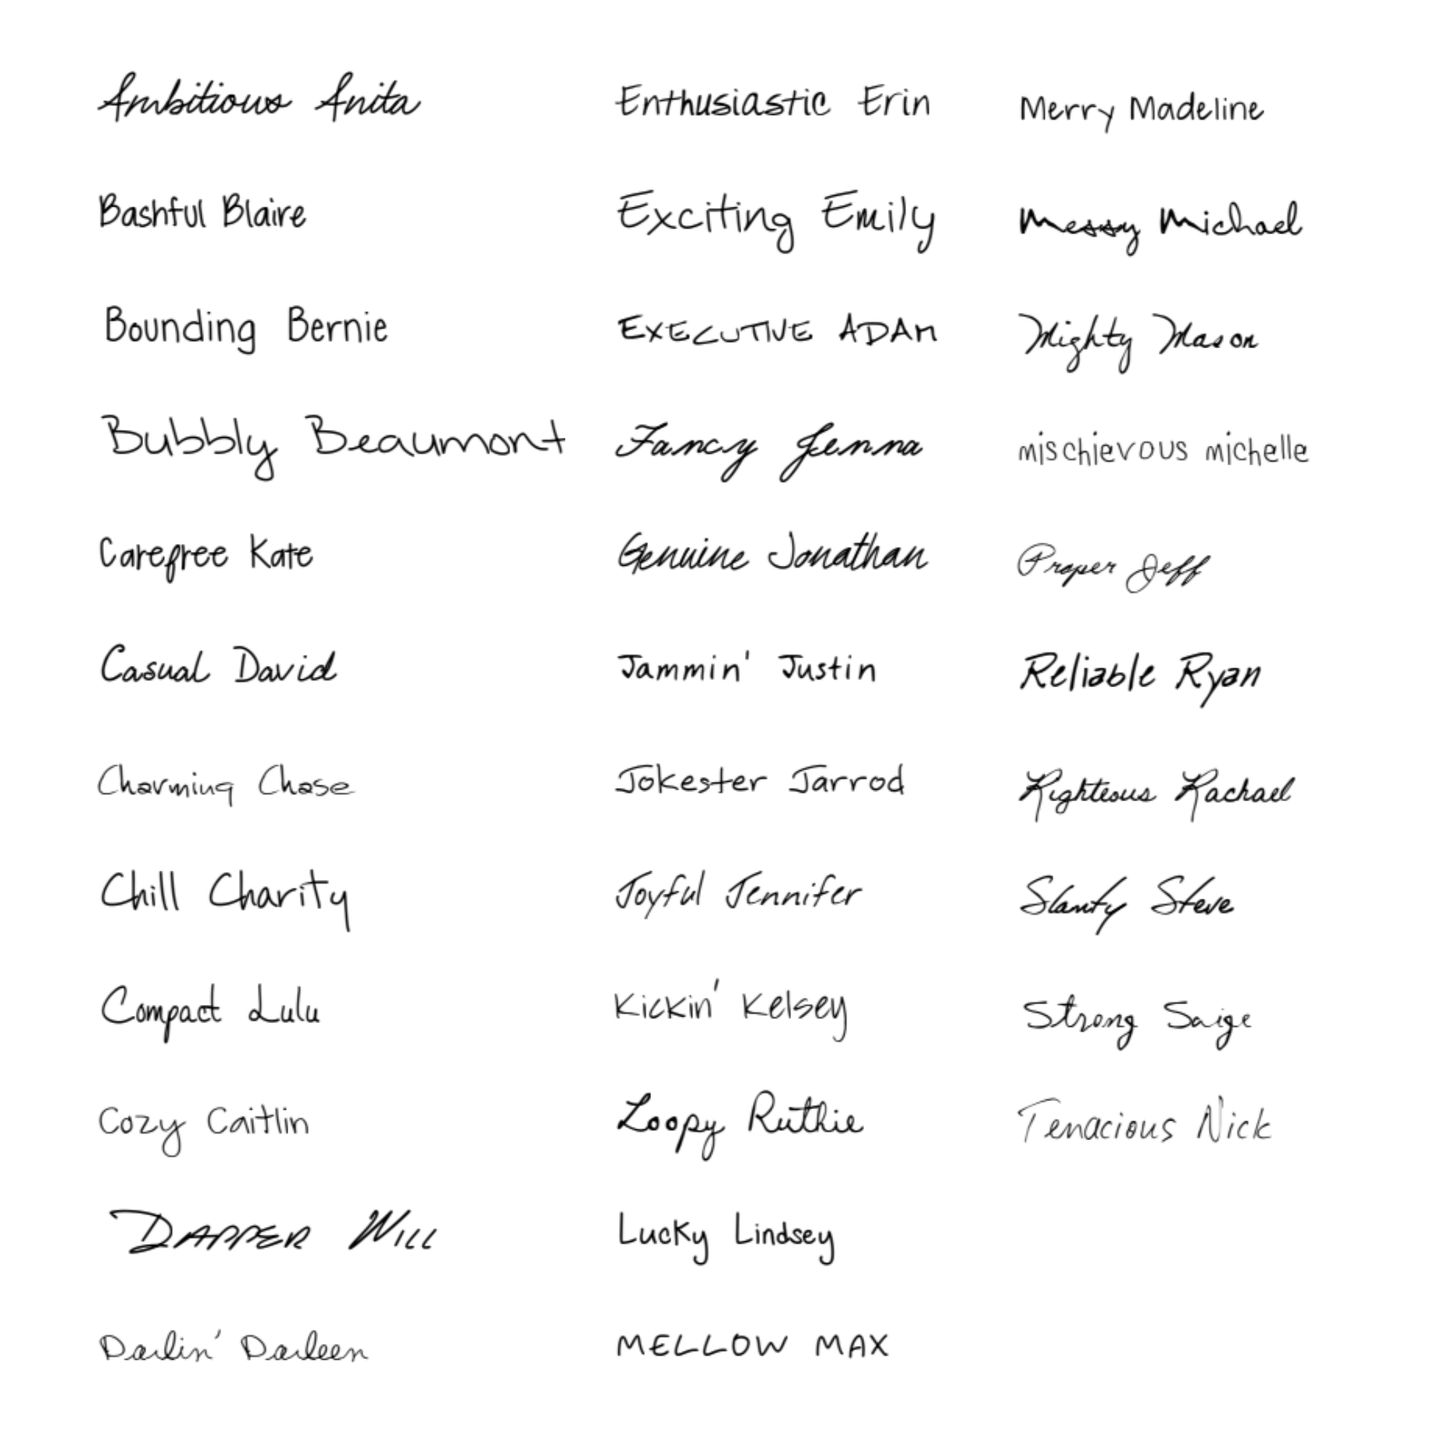 Ambitious Anita
Bashful Blaire
Bounding Bernie
Bubbly Beaumont
Carefree Kate
Casual David
Charming Chase
Chill Charity
Compact Lulu
Cozy Caitlin
DAPPER WILL
Darlin' Darleen
Enthusiastic Erin
Exciting Emily
EXECUTIVE ADAM
Fancy Jenna
Genuine Jonathan
Jammin' Justin
Jokester Jarrod
Joyful Jennifer
Kickin' Kelsey
Loopy Ruthie
Lucky Lindsey
MELLOW MAX
Merry Madeline
Messy Michael
Mighty Mason
mischievous michelle
Proper Jeff
Reliable Ryan
Righteous Rachael
Slanty Steve
Strong Saige
Tenacious Nick